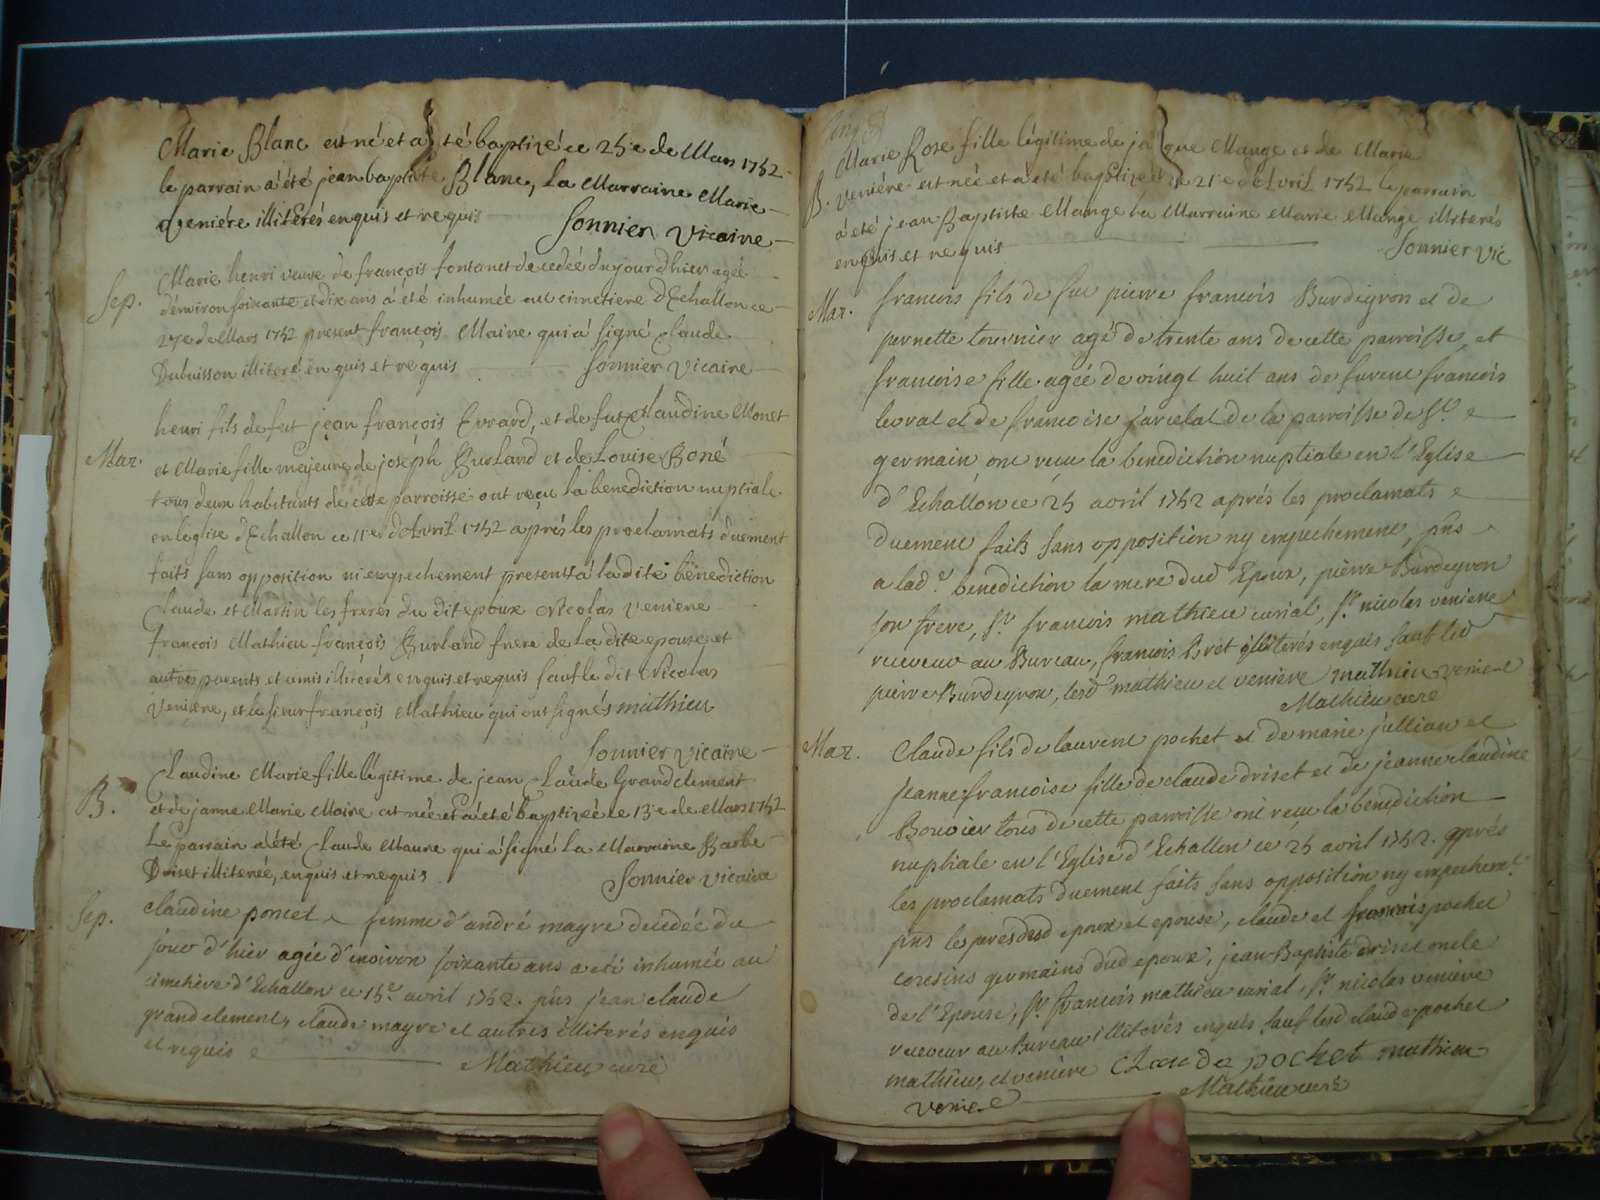 Marie Blanc est né et a été baptizé ce 25e de Mars 1752
le parrain a été jean baptiste Blanc, La Marraine Marie
Veniére illiterés enquis et requis
Sonnier Vicaire
Sep.
Marie henri veuve de françois fontanet decedée du jour d'hier agée
d'environ soixante et dix ans a été inhumée au cimetiere d'Echallon ce
27e de Mars 1752 present françois Maire qui a signé Claude
Dubuisson illiteré enquis et requis
Sonnier Vicaire
Mar.
henri fils de fut jean françois Evrard, et de fut Claudine Monet
et Marie fille majeure de joséph Burland et de Louise Boné
tous deux habitants de cette parroisse ont reçu la benediction nuptiale
en leglise d'Echallon ce 11e d'Avril 1752 aprés les proclamats duement
faits sans opposition ni empechement presents a la dite bénédiction
Claude et Martin les freres du dit epoux Nicolas Veniere
françois Mathieu françois Burland frere de la dite epouse et
autres parents et amis illiterés enquis et requis sauf le dit Nicolas
Veniere, et le sieur françois Mathieu qui ont signés mathieu
Sonnier Vicaire
B.
Claudine Marie fille légitime de jean Claude Grandclement
et de janne Marie Maire est née et a été baptizée le 13e de Mars 1752
Le parrain a été Claude Maure qui a signé La Marraine Barbe
Driset illiterée, enquis et requis
Sonnier Vicaire
Sep.
claudine poncet femme d'andré mayre decedée du
jour d'hier agée d'environ soixante ans a eté inhumée au
cimetiére d'Echallon ce 15e avril 1752. pns jean claude
grandclement, claude mayre et autres illiterés enquis
et requis
Mathieu curé
B.
Marie Rose fille légitime de jaque Mange et de Marie
Veniére est née et a été baptizée le 21e d'Avril 1752 le parrain
a été jean Baptiste Mange la Marraine Marie Mange illiterés
enquis et requis
Sonnier Vic
Mar.
francois fils de feu pierre francois Burdeyron et de
pernette tournier agé de trente ans de cette parroisse et
francoise fille agée de vingt huit ans de francois
boval et de francoise de la parroisse de St
germain ont recu la benediction nuptiale en l'Eglise
d'Echallon ce 25 avril 1752 aprés les proclamats
duement faits sans opposition ny empechement, pns
a lade benediction la mere dud Epoux, pierre Burdeyron
son frere, Sr francois mathieu curial, Sr nicolas veniere
receveur au Bureau, francois Brét illiterés enquis sauf led
pierre Burdeyron, lesd mathieu et veniere mathieu veniere
Mathieu curé
Mar.
Claude fils de laurent pochet et de marie jullian et
Jeanne francoise fille de claude driset et de jeanne claudine
Bouvier tous de cette parroisse ont recu la benediction
nuptiale en l'Eglise d'Echallon ce 25 avril 1752. aprés
les proclamats duement faits sans opposition ny empechemt
pns les peres desd epoux et epouse, claude et francois pochet
cousins germains dud epoux, jean Baptiste driset oncle
de l'Epouse, Sr francois mathieu curial, Sr nicolas veniere
receveur au Bureau illiterés enquis sauf lesd claude pochet
mathieu, et veniere Claude pochet mathieu
veniere
Mathieu curé